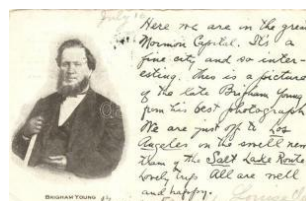 July
Here we are in the great
Mormon Capital. It's a
fine city and so inter-
esting. This is a picture
of the late Brigham Young
from his best photograph
We are just off to Los
Angeles on the swell new
train of the Salt Lake Route
Lovely trip All are well
and happy.
BRIGHAM YOUNG